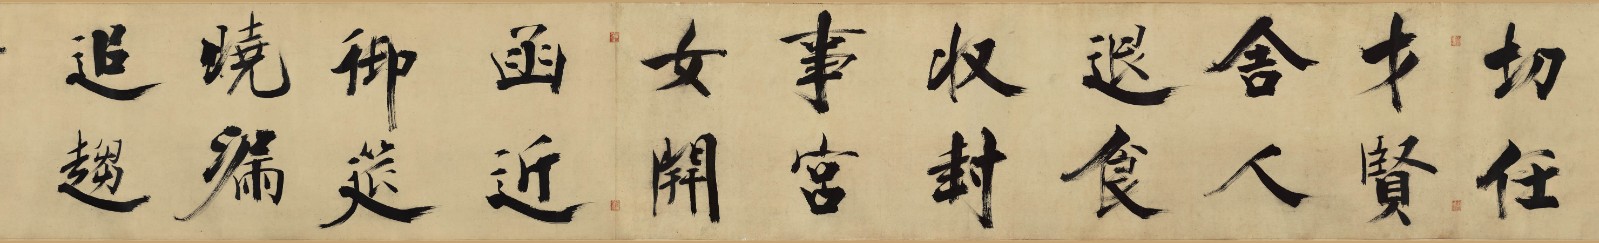 切任
才賢
舍人
退食
收封
事宮
女開
函近
御筵
曉漏
追趨